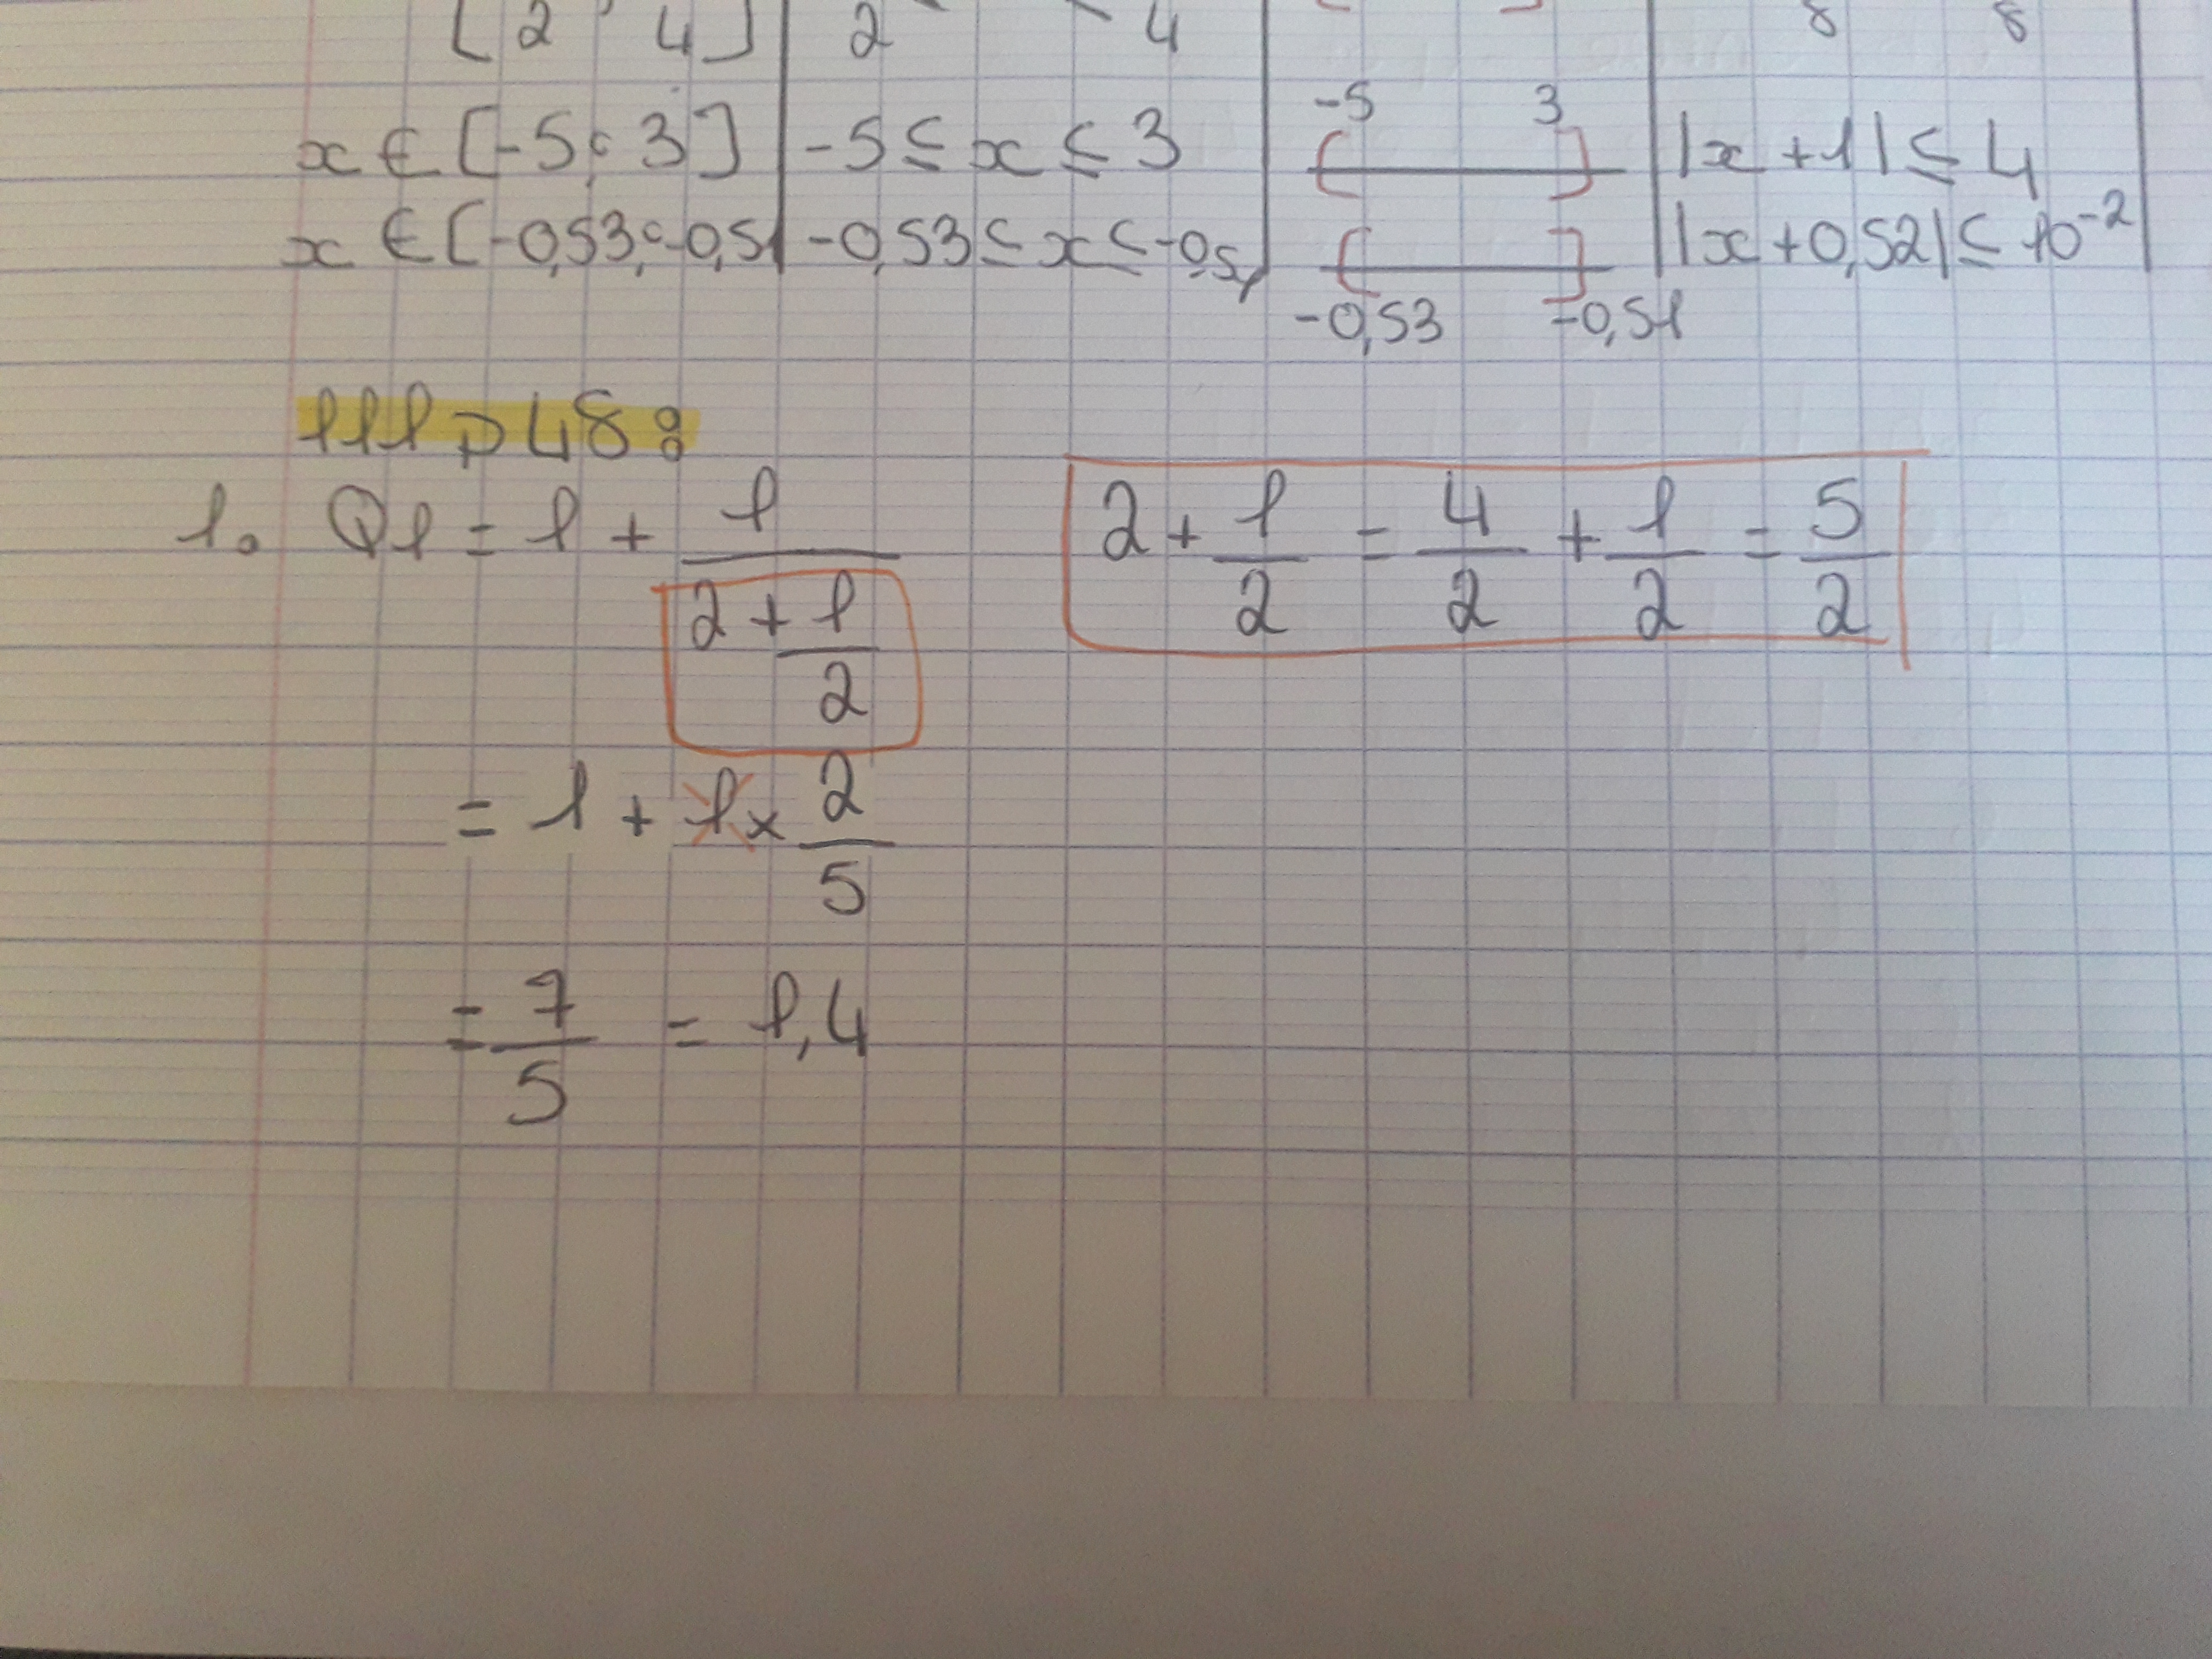 [ 2 4 ] | 2 4 | | 8 8 |
x ∈ [-5 ; 3] | -5 ≤ x ≤ 3 | -5 3 | |x + 1| ≤ 4
x ∈ [-0,53 ; -0,51 | -0,53 ≤ x ≤ -0,51 | -0,53 -0,51 | |x + 0,52| ≤ 10^-2
111 p 48 :
1. Q1 = 1 + 1/(2 + 1/2)
2 + 1/2 = 4/2 + 1/2 = 5/2
= 1 + 1 × 2/5
= 7/5 = 1,4